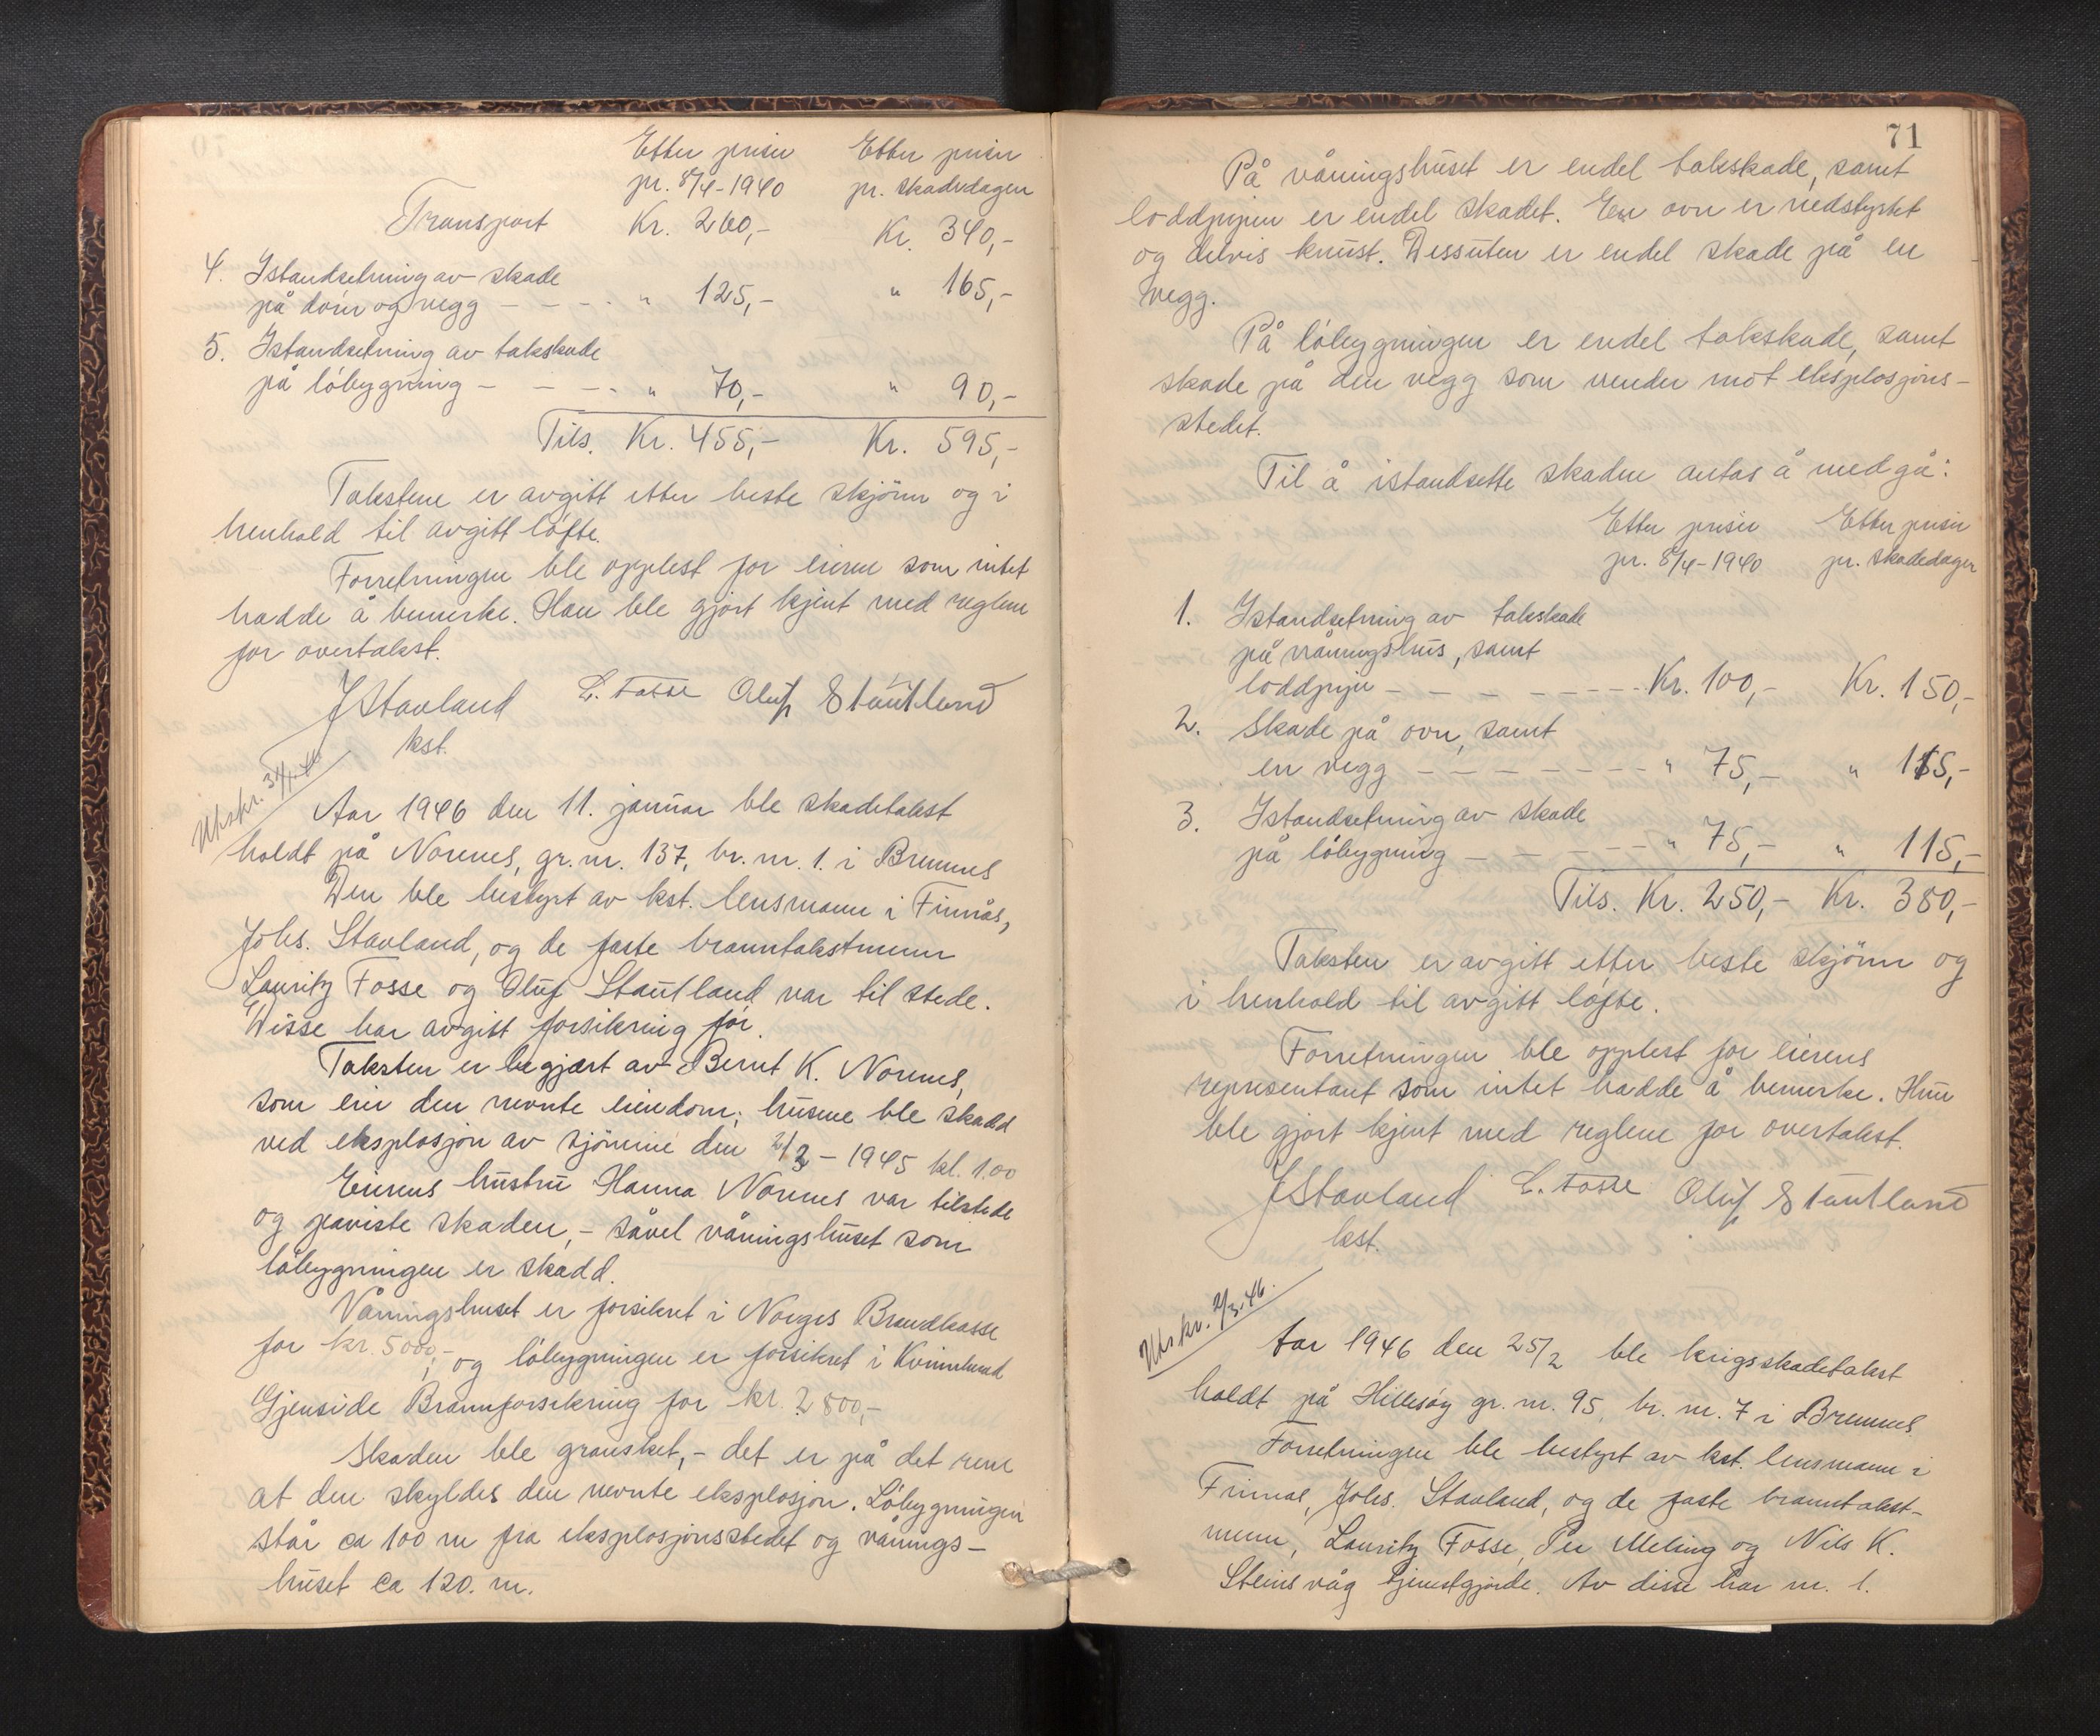 Etter priser Etter priser
pr. 8/4-1940 pr. skadedagen
Transport Kr. 260,- Kr. 340,-
4. Istandsetning av skade
på dörer og vegg - - - - " 125,- " 165,-
5. Istandsetning av takskade
på löbygning - - - - " 70,- " 90,-
Tils. Kr. 455,- Kr. 595,-
Takstene er avgitt etter beste skjönn og i
henhold til avgitt löfte.
Forretningen ble opplest for eieren som intet
hadde å bemerke. Han ble gjort kjent med reglene
for overtakst.
J Stavland L. Fosse Oluf Stautland
kst.
Utskr. 31/1-46
Aar 1946 den 11. januar ble skadetakst
holdt på Nornes, gr. nr. 137, br. nr. 1. i Bremnes
Den ble bestyrt av kst. lensmann i Finnås,
Johs. Stavland, og de faste branntakstmenn
Lauritz Fosse og Oluf Stautland var til stede.
Disse har avgitt forsikring för.
Taksten er begjært av Bernt K. Nornes,
som eier den nevnte eiendom; husene ble skadd
ved eksplosjon av sjömine den 2/3 - 1945 kl. 1.00
Eierens hustru Hanna Nornes var tilstede
og paviste skaden, - såvel våningshuset som
löbygningen er skadd.
Våningshuset er forsikret i Norges Brandkasse
for kr. 5000,-, og löbygningen er forsikret i Kvinnherad
Gjenside Brannforsikring for kr. 2800,-
Skaden ble gransket, - det er på det rene
at den skyldes den nevnte eksplosjon. Löbygningen
står ca 100 m fra eksplosjonsstedet og vånings-
huset ca 120. m.
71
På våningshuset er endel takskade, samt
loddpipen er endel skadet. En ovn er nedstyrtet
og delvis knust. Dessuten er endel skade på en
vegg.
På löbygningen er endel takskade, samt
skade på den vegg som vender mot eksplosjons-
stedet.
Til å istandsette skaden antas å medgå:
Etter priser Etter priser
pr. 8/4-1940 pr. skadedagen
1. Istandsetning av takskade
på våningshus, samt
loddpipe - - - - - - - - Kr. 100,- Kr. 150,-
2. Skade på ovn, samt
en vegg - - - - - - - - " 75,- " 115,-
3. Istandsetning av skade
på löbygning - - - - - - " 75,- " 115,-
Tils. Kr. 250,- Kr. 380,-
Taksten er avgitt etter beste skjönn og
i henhold til avgitt löfte.
Forretningen ble opplest for eierens
representant som intet hadde å bemerke. Hun
ble gjort kjent med reglene for overtakst.
J Stavland L. Fosse Oluf Stautland
kst.
Utskr. 2/3-46.
Aar 1946 den 25/2 ble krigsskadetakst
holdt på Hillesöy gr. nr. 95, br. nr. 7 i Bremnes
Forretningen ble bestyrt av kst. lensmann i
Finnas, Johs. Stavland, og de faste branntakst-
menn, Lauritz Fosse, Per Meling og Nils K.
Steinsvåg tjenestgjorde. Av disse har nr. 1.